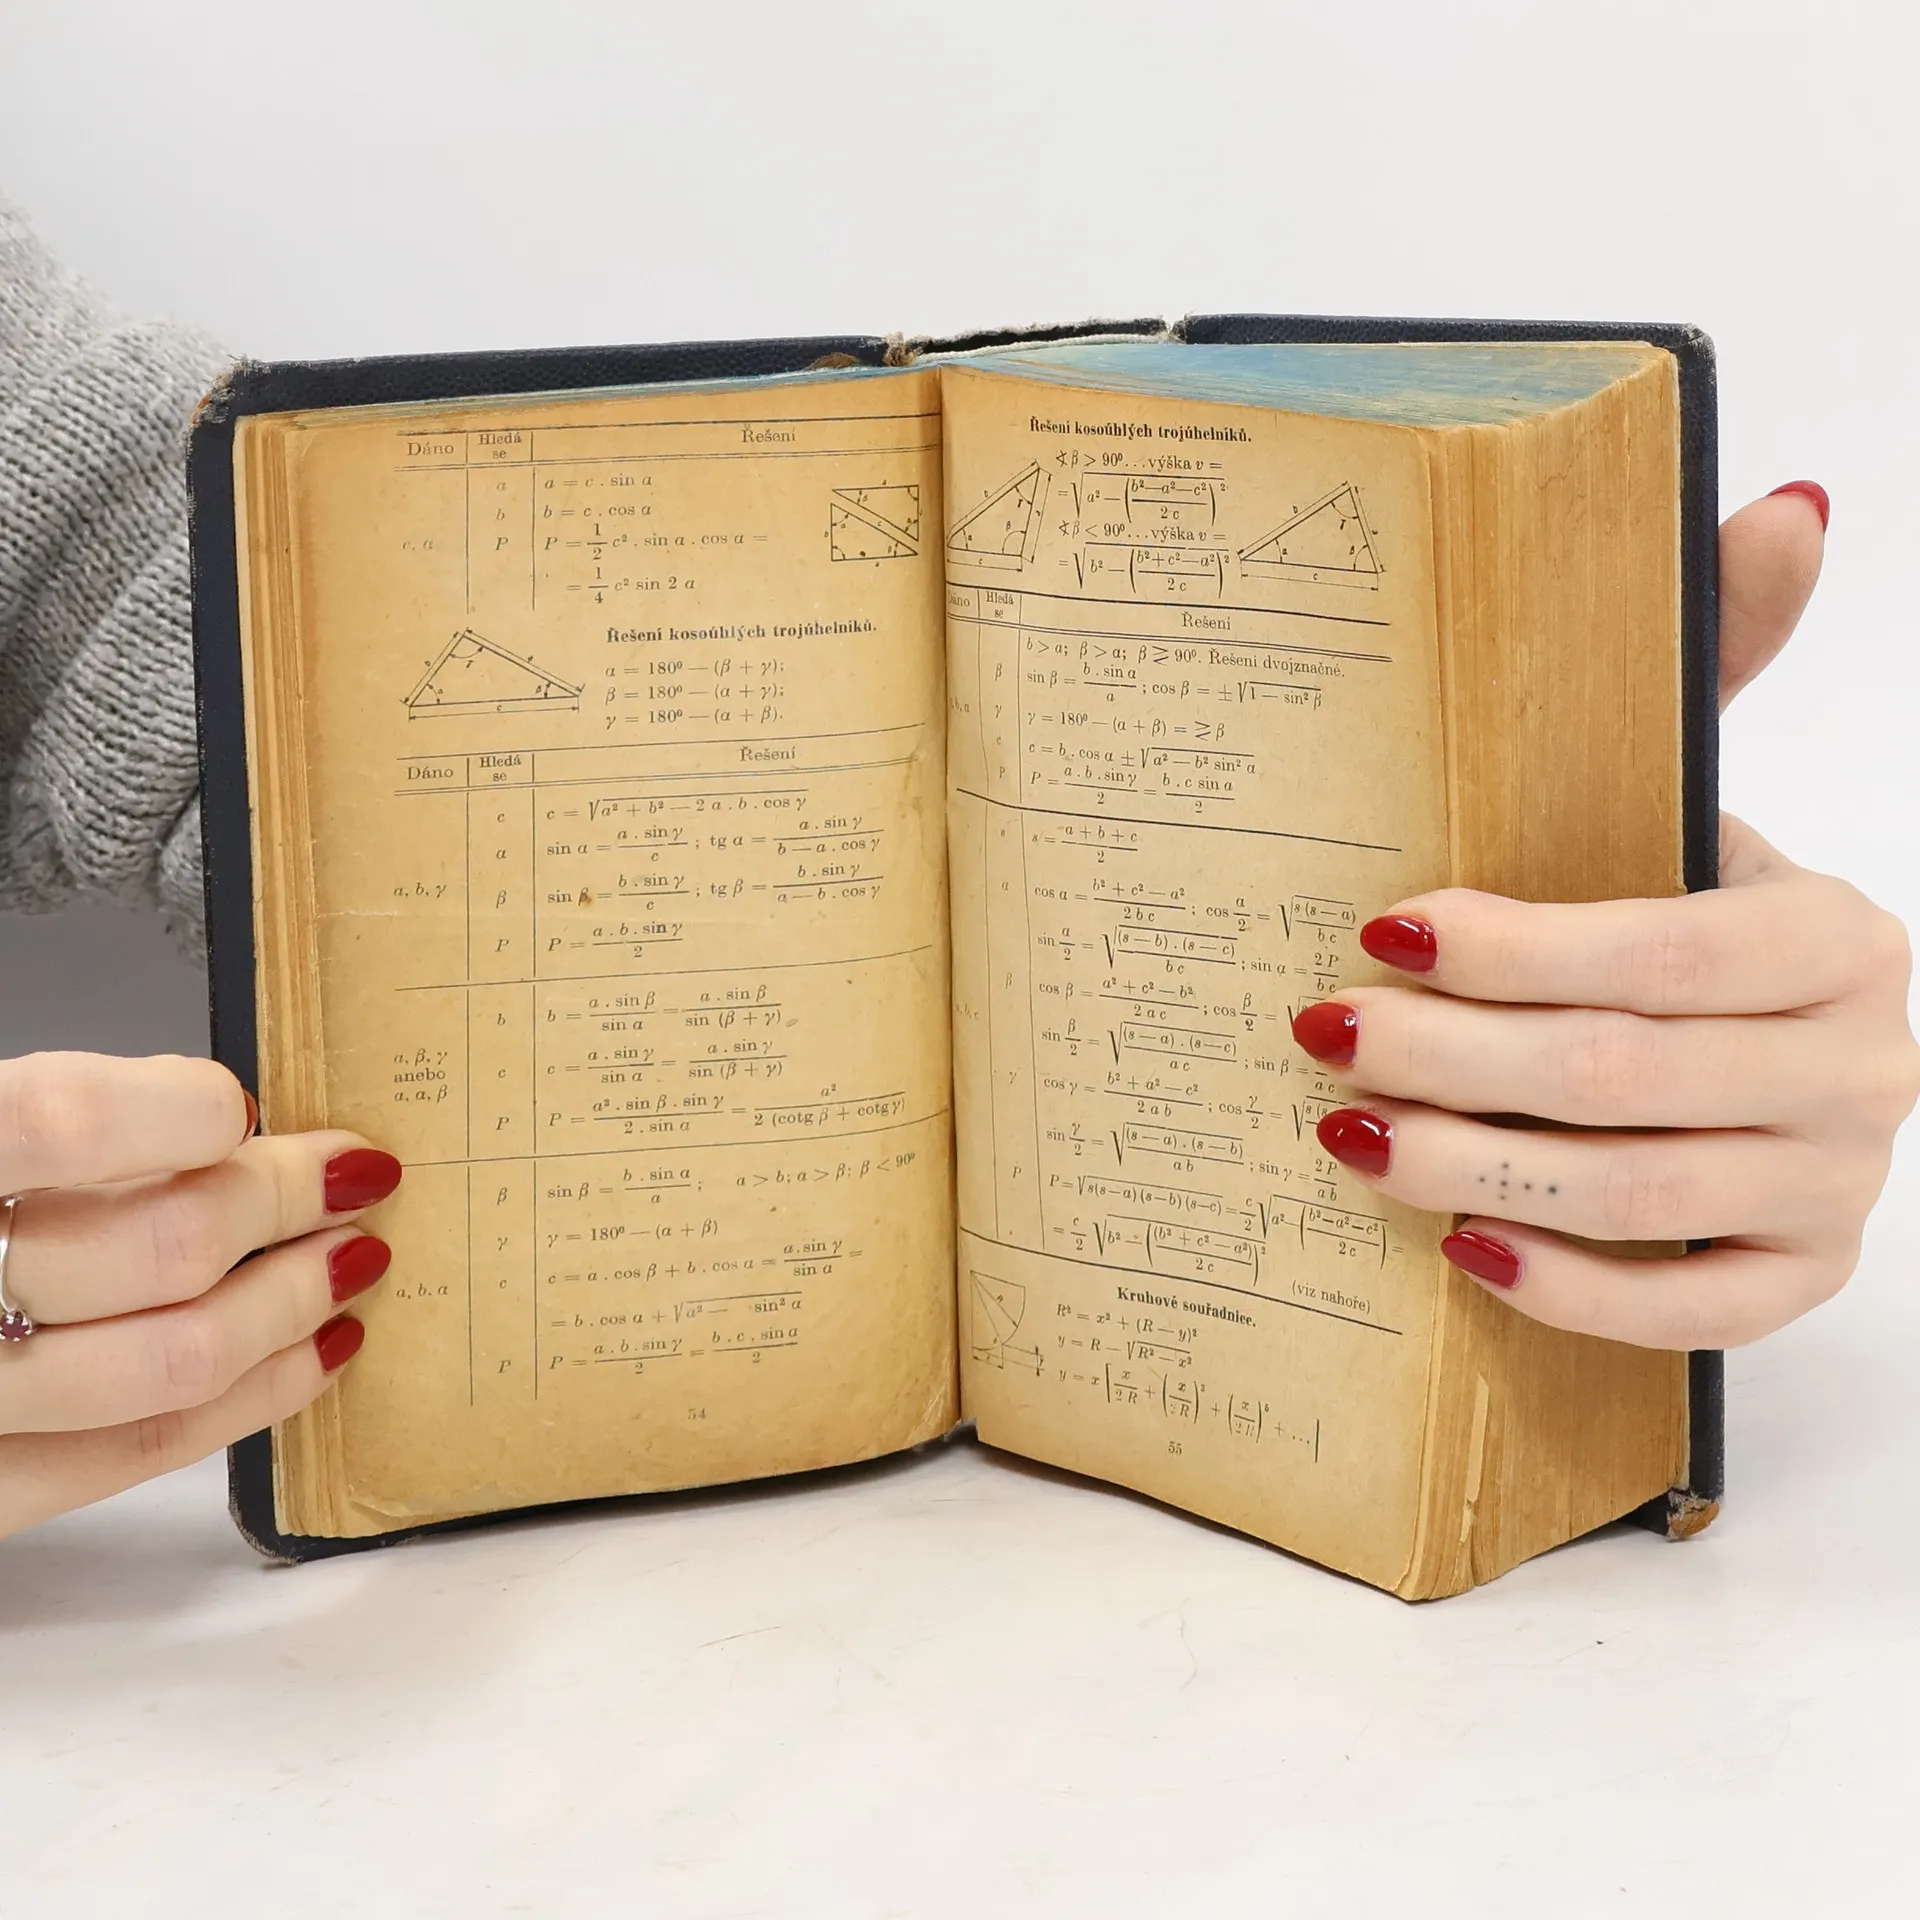 Dáno Hledá se Řešení
a a = c . sin α
b b = c . cos α
c, α P P = 1/2 c² . sin α . cos α =
= 1/4 c² sin 2 α
Řešení kosoúhlých trojúhelníků.
α = 180⁰ — (β + γ);
β = 180⁰ — (α + γ);
γ = 180⁰ — (α + β).
Dáno Hledá se Řešení
c c = √(a² + b² — 2 a . b . cos γ)
α sin α = a . sin γ / c ; tg α = a . sin γ / (b — a . cos γ)
a, b, γ β sin β = b . sin γ / c ; tg β = b . sin γ / (a — b . cos γ)
P P = a . b . sin γ / 2
b b = a . sin β / sin α = a . sin β / sin (β + γ)
a, β, γ
anebo
a, α, β
c c = a . sin γ / sin α = a . sin γ / sin (β + γ)
P P = a² . sin β . sin γ / 2 . sin α = a² / 2 (cotg β + cotg γ)
β sin β = b . sin α / a ; a > b; α > β; β < 90⁰
γ γ = 180⁰ — (α + β)
a, b, α c c = a . cos β + b . cos α = a . sin γ / sin α =
= b . cos α + √(a² — sin² α)
P P = a . b . sin γ / 2 = b . c . sin α / 2
54
Řešení kosoúhlých trojúhelníků.
∢ β > 90⁰...výška v =
= √(a² — ((b² — a² — c²) / 2 c)²)
∢ β < 90⁰...výška v =
= √(b² — ((b² + c² — a²) / 2 c)²)
Hledá se Řešení
b > a; β > α; β ≷ 90⁰. Řešení dvojznačné.
β sin β = b . sin α / a ; cos β = ± √(1 — sin² β)
γ γ = 180⁰ — (α + β) = ≷ β
c c = b . cos α ± √(a² — b² sin² α)
P P = a . b . sin γ / 2 = b . c sin α / 2
s s = (a + b + c) / 2
α cos α = (b² + c² — a²) / 2 b c ; cos α/2 = √(s (s — a) / b c)
sin α/2 = √((s — b) . (s — c) / b c) ; sin α = 2 P / b c
β cos β = (a² + c² — b²) / 2 a c ; cos β/2 =
a, b, c
sin β/2 = √((s — a) . (s — c) / a c) ; sin β = / a c
γ cos γ = (b² + a² — c²) / 2 a b ; cos γ/2 =
sin γ/2 = √((s — a) . (s — b) / a b) ; sin γ = 2 P / a b
P P = √(s(s—a)(s—b)(s—c)) = c/2 √(a² — ((b² — a² — c²) / 2 c)²) =
= c/2 √(b² — ((b² + c² — a²) / 2 c)²)
(viz nahoře)
Kruhové souřadnice.
R² = x² + (R — y)²
y = R — √(R² — x²)
y = x [x / 2 R + (x / 2 R)³ + (x / 2 R)⁵ + ...]
55